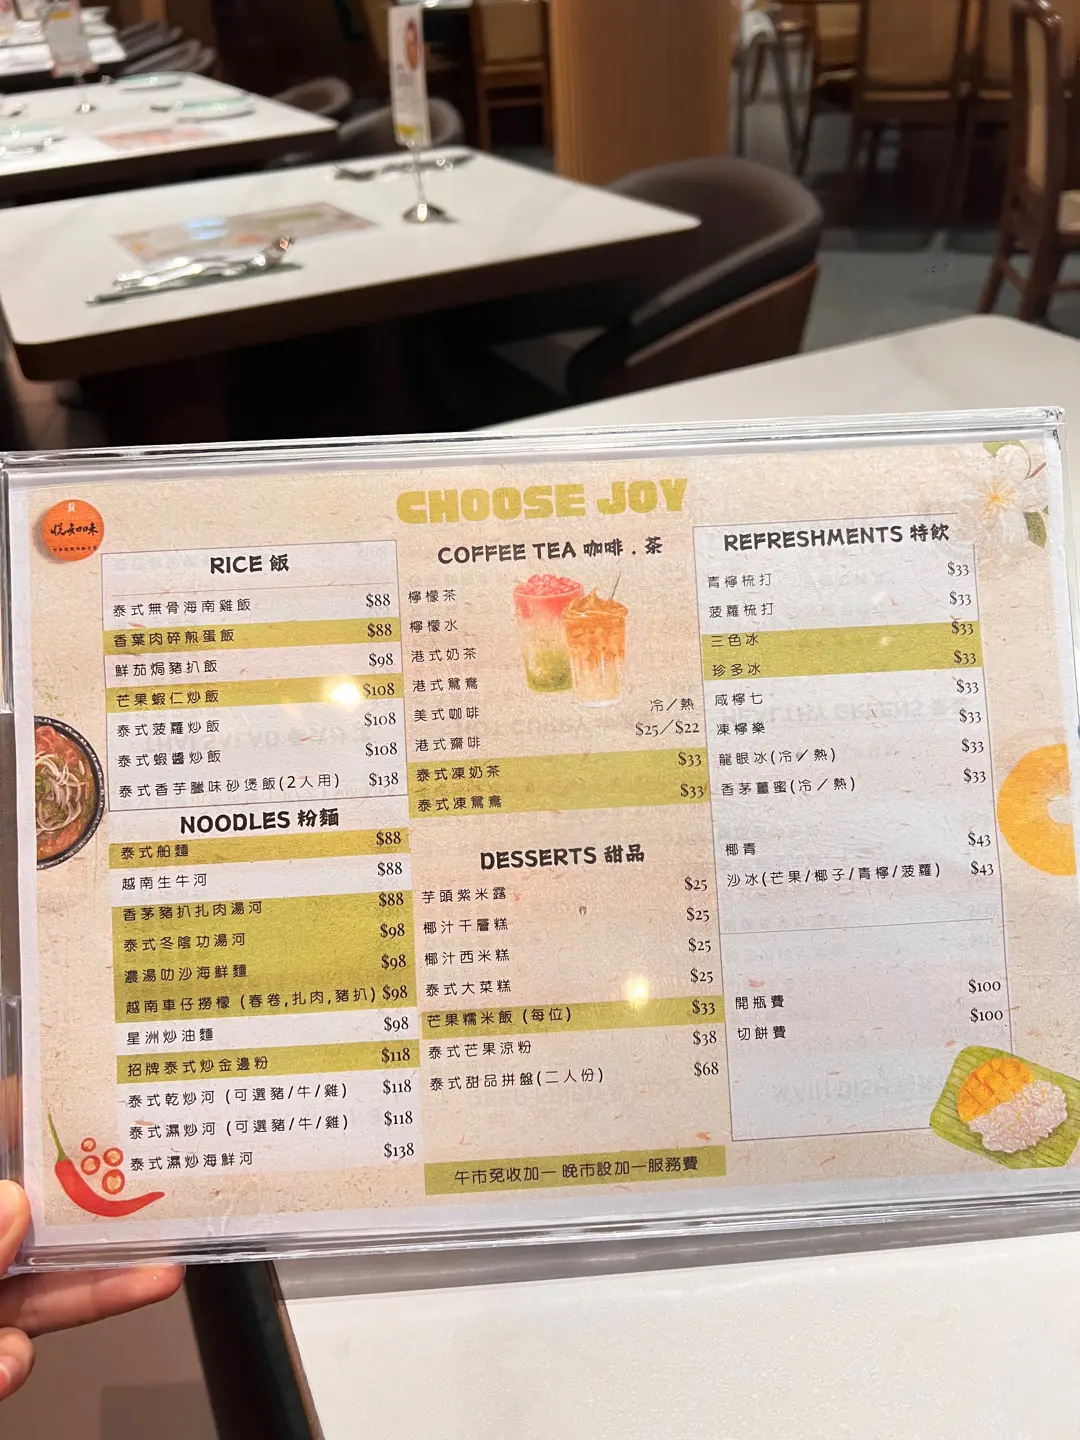 CHOOSE JOY
悅知味
RICE 飯
泰式無骨海南雞飯 $88
香葉肉碎煎蛋飯 $88
鮮茄焗豬扒飯 $98
芒果蝦仁炒飯 $108
泰式菠蘿炒飯 $108
泰式蝦醬炒飯 $108
泰式香芋臘味砂煲飯(2人用) $138
NOODLES 粉麵
泰式船麵 $88
越南生牛河 $88
香茅豬扒扎肉湯河 $88
泰式冬陰功湯河 $98
濃湯叻沙海鮮麵 $98
越南車仔撈檬 (春卷,扎肉,豬扒) $98
星洲炒油麵 $98
招牌泰式炒金邊粉 $118
泰式乾炒河 (可選豬/牛/雞) $118
泰式濕炒河 (可選豬/牛/雞) $118
泰式濕炒海鮮河 $138
COFFEE TEA 咖啡 . 茶
檸檬茶
檸檬水
港式奶茶
港式鴛鴦
美式咖啡 冷／熱
港式齋啡 $25／$22
泰式凍奶茶 $33
泰式凍鴛鴦 $33
DESSERTS 甜品
芋頭紫米露 $25
椰汁千層糕 $25
椰汁西米糕 $25
泰式大菜糕 $25
芒果糯米飯 (每位) $33
泰式芒果涼粉 $38
泰式甜品拼盤(二人份) $68
午市免收加一 晚市設加一服務費
REFRESHMENTS 特飲
青檸梳打 $33
菠蘿梳打 $33
三色冰 $33
珍多冰 $33
咸檸七 $33
凍檸樂 $33
龍眼冰(冷／熱) $33
香茅薑蜜(冷／熱) $33
椰青 $43
沙冰(芒果/椰子/青檸/菠蘿) $43
開瓶費 $100
切餅費 $100